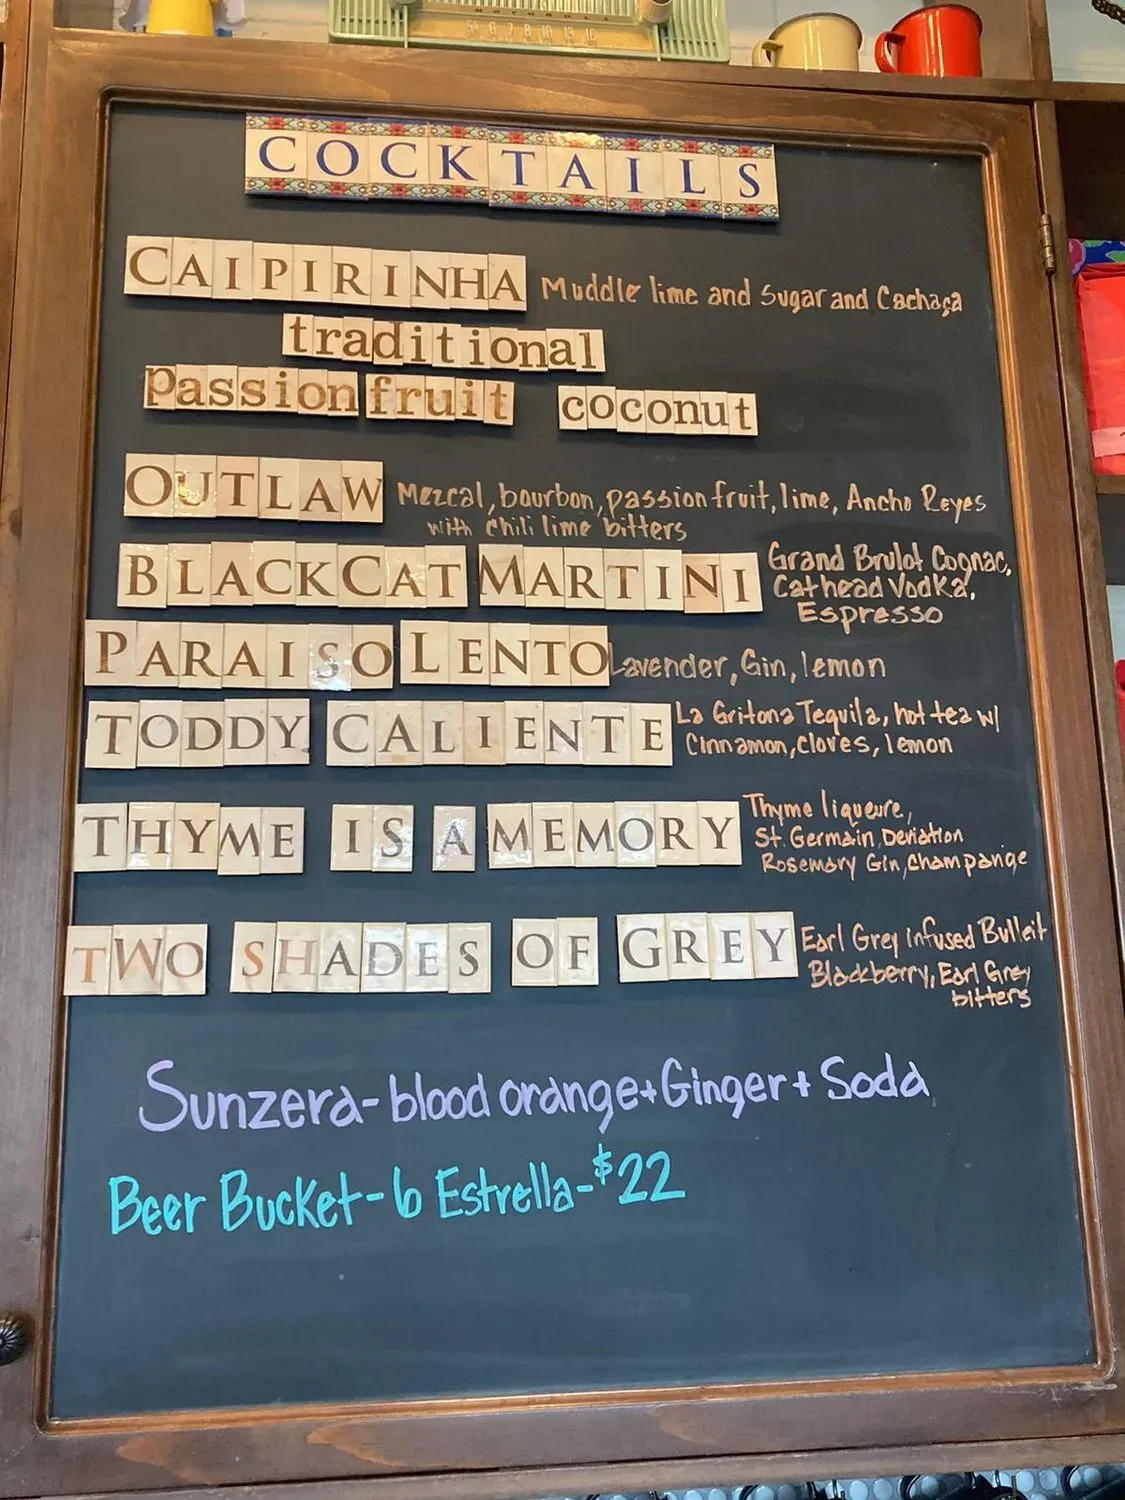 MOTOROLA
COCKTAILS
CAIPIRINHA Muddle lime and Sugar and Cachaça
traditional
passion fruit coconut
OUTLAW Mezcal, bourbon, passion fruit, lime, Ancho Reyes
with chili lime bitters
BLACKCAT MARTINI Grand Brulot Cognac,
Cathead Vodka,
Espresso
PARAISO LENTO Lavender, Gin, lemon
TODDY CALIENTE La Gritona Tequila, hot tea w/
Cinnamon, cloves, lemon
THYME IS A MEMORY Thyme liqueure,
St. Germain, Deviation
Rosemary Gin, champange
TWO SHADES OF GREY Earl Grey infused Bulleit
Blackberry, Earl Grey
bitters
Sunzera - blood orange + Ginger + Soda
Beer Bucket - 6 Estrella - $22